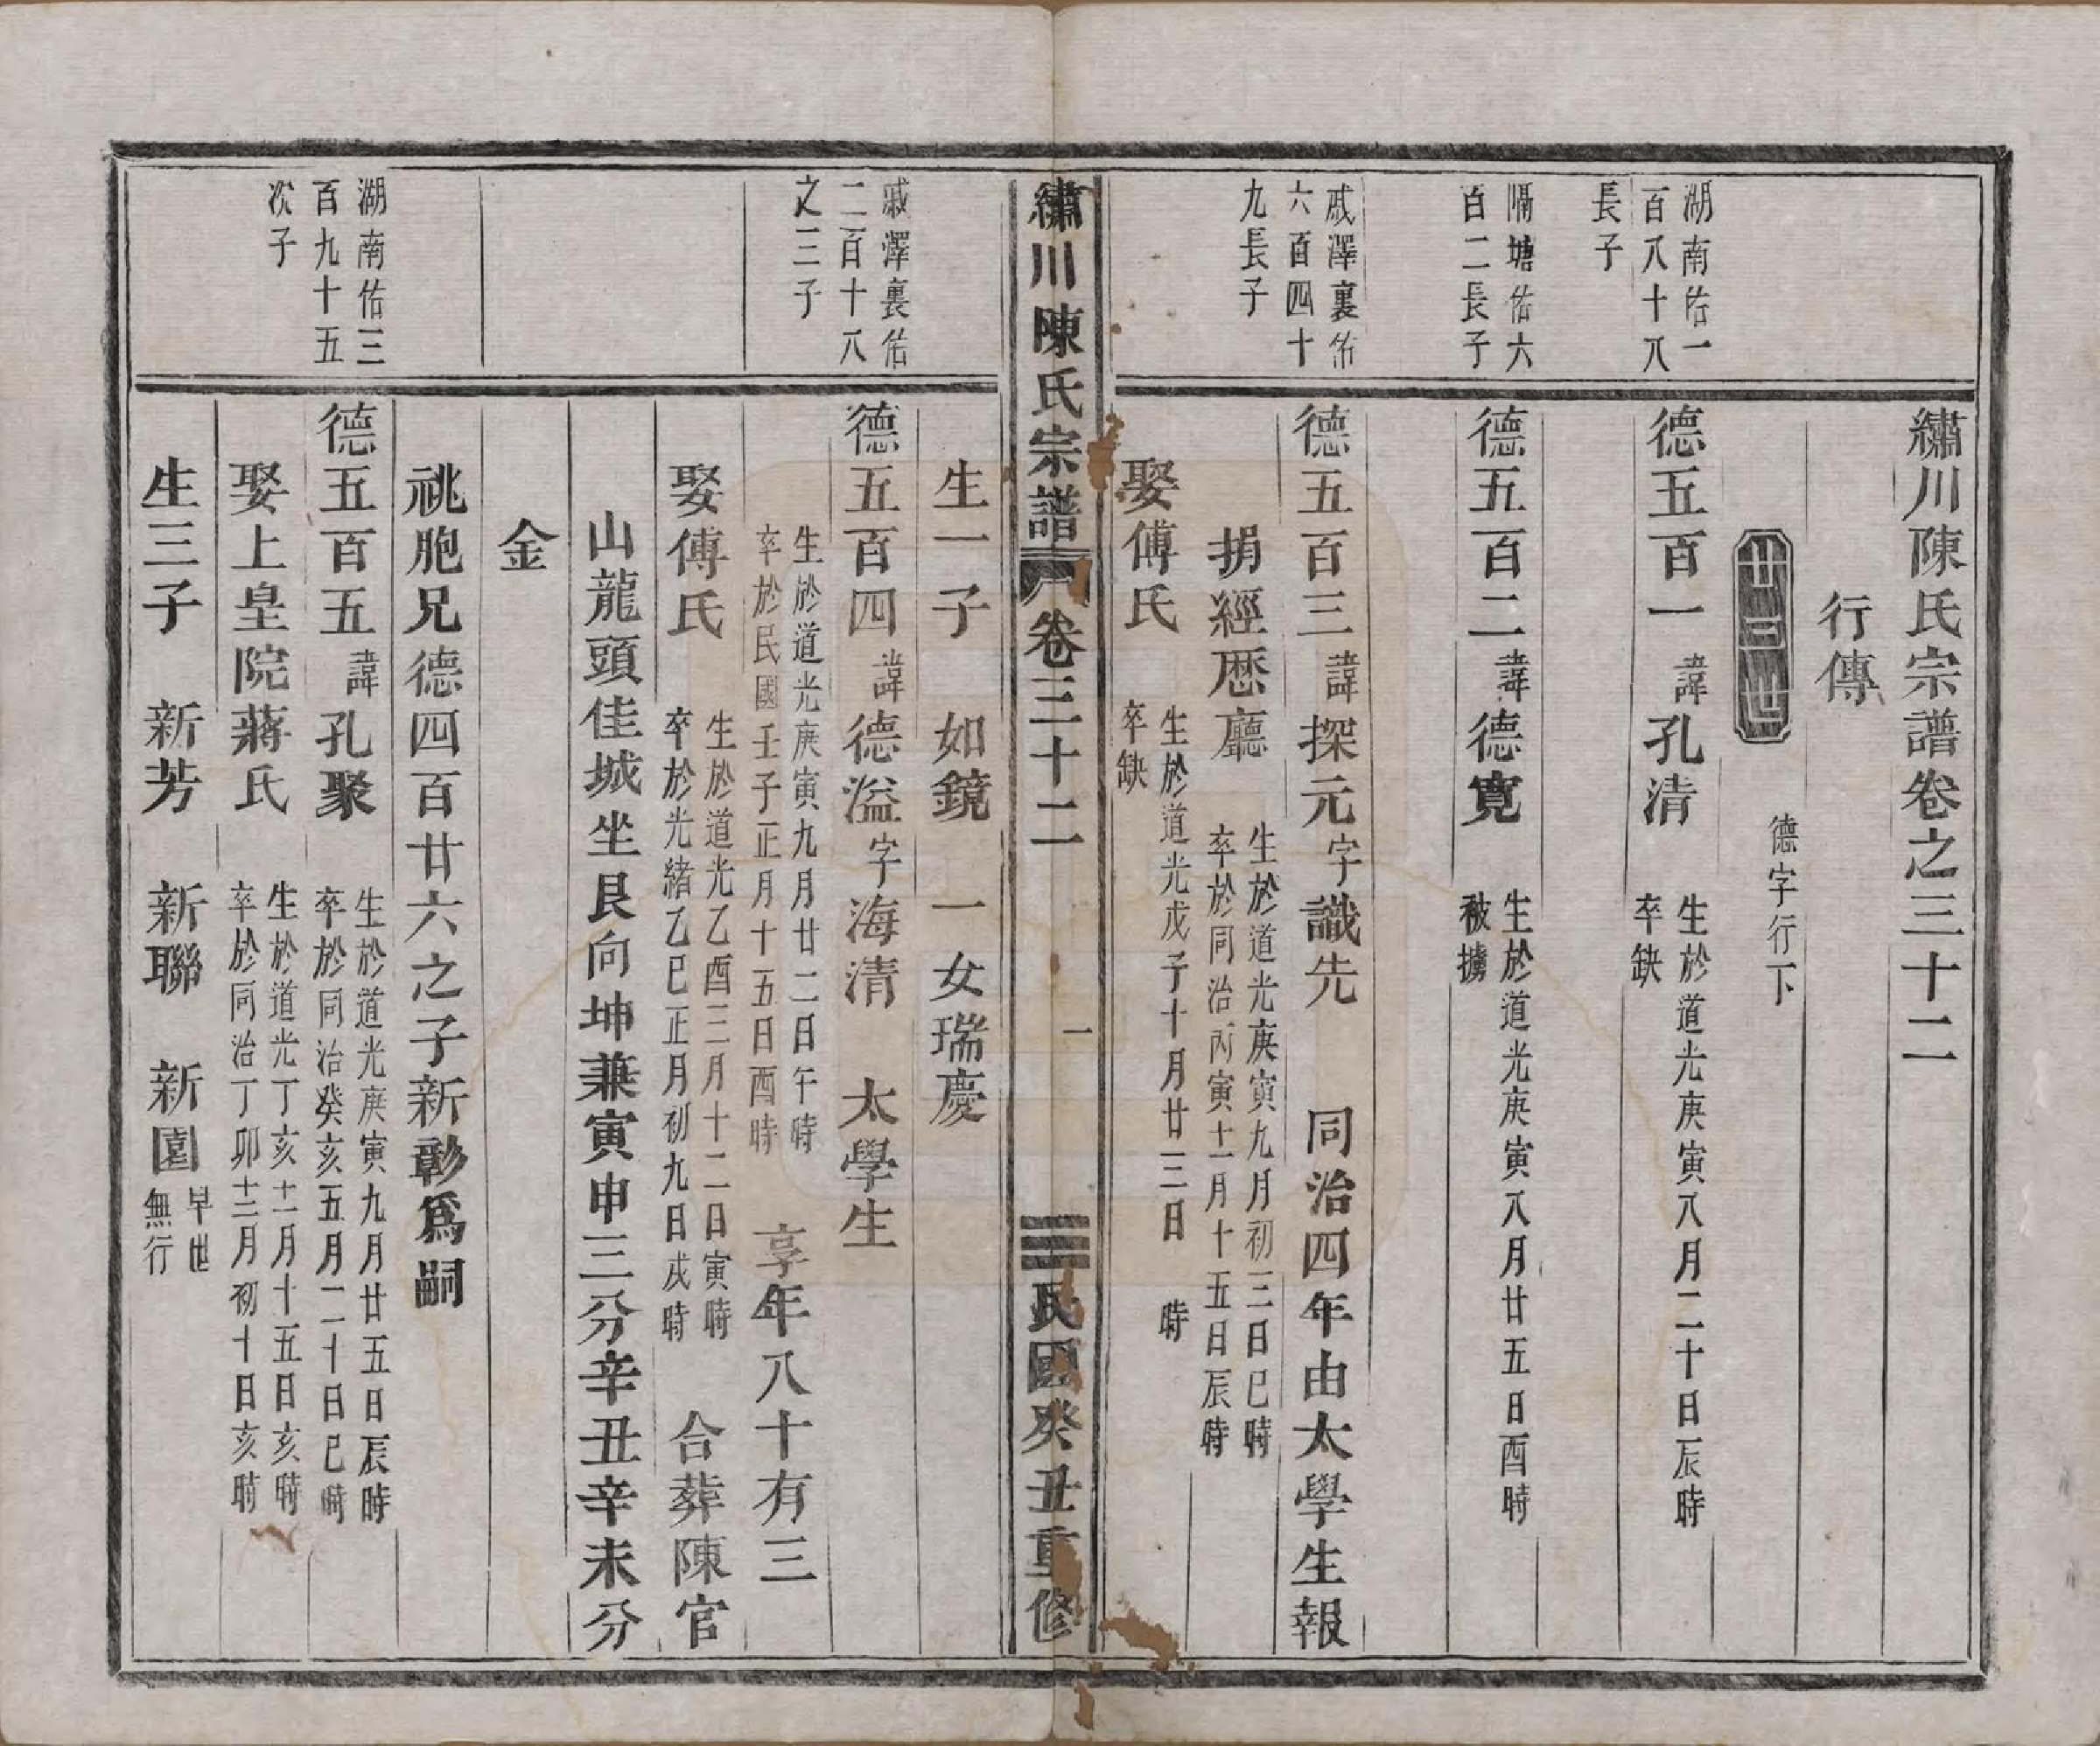 繡川陳氏宗譜卷之三十二
行傳
卅三世
德字行下
湖南佑一
百八十八
長子
德五百一諱孔清
生於道光庚寅八月二十日辰時
卒缺
隔塘佑六
百二長子
德五百二諱德寬
生於道光庚寅八月廿五日酉時
被擄
戚澤裏佑
六百四十
九長子
德五百三諱探元字識先 同治四年由太學生報
捐經歷廳
生於道光庚寅九月初三日巳時
卒於同治丙寅十一月十五日辰時
娶傅氏
生於道光戊子十月廿三日 時
卒缺
繡川陳氏宗譜 卷三十二 一 民國癸丑重修
生一子 如鏡 一女瑞慶
戚澤裏佑
二百十八
之三子
德五百四諱德溢字海清 太學生
生於道光庚寅九月廿二日午時
卒於民國壬子正月十五日酉時
享年八十有三
娶傅氏
生於道光乙酉三月十二日寅時
卒於光緒乙巳正月初九日戌時
合葬陳官
山龍頭佳城坐艮向坤兼寅申三分辛丑辛未分
金
祧胞兄德四百廿六之子新彰為嗣
湖南佑三
百九十五
次子
德五百五諱孔聚
生於道光庚寅九月廿五日辰時
卒於同治癸亥五月二十日巳時
娶上皇院蔣氏
生於道光丁亥十一月十五日亥時
卒於同治丁卯十二月初十日亥時
生三子 新芳 新聯 新園
早世
無行